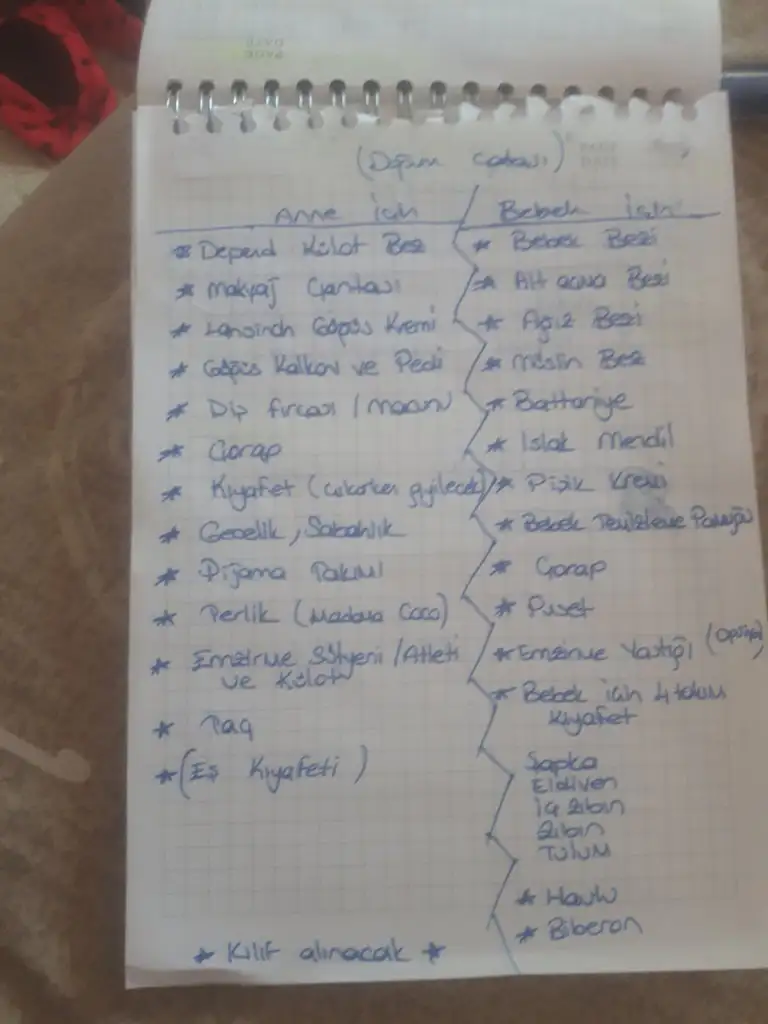 (Doğum Çantası)
Anne için
* Depend Külot Bez
* Makyaj Çantası
* Lansinoh Göğüs Kremi
* Göğüs Kalkan ve Pedi
* Diş fırçası / macunu
* Çorap
* Kıyafet (çıkarken giyilecek)
* Gecelik, Sabahlık
* Pijama Takımı
* Terlik (Madame Coco)
* Emzirme Sütyeni / Atleti
ve Külot
* Taç
* (Eş Kıyafeti)
* Kılıf alınacak *
Bebek için
* Bebek Bezi
* Alt açma Bezi
* Ağız Bezi
* Müslin Bez
* Battaniye
* Islak Mendil
* Pişik Kremi
* Bebek Temizleme Pamuğu
* Çorap
* Puset
* Emzirme Yastığı (Opsiyonel)
* Bebek için 4 takım
Kıyafet
Şapka
Eldiven
iç zıbın
zıbın
TULUM
* Havlu
* Biberon